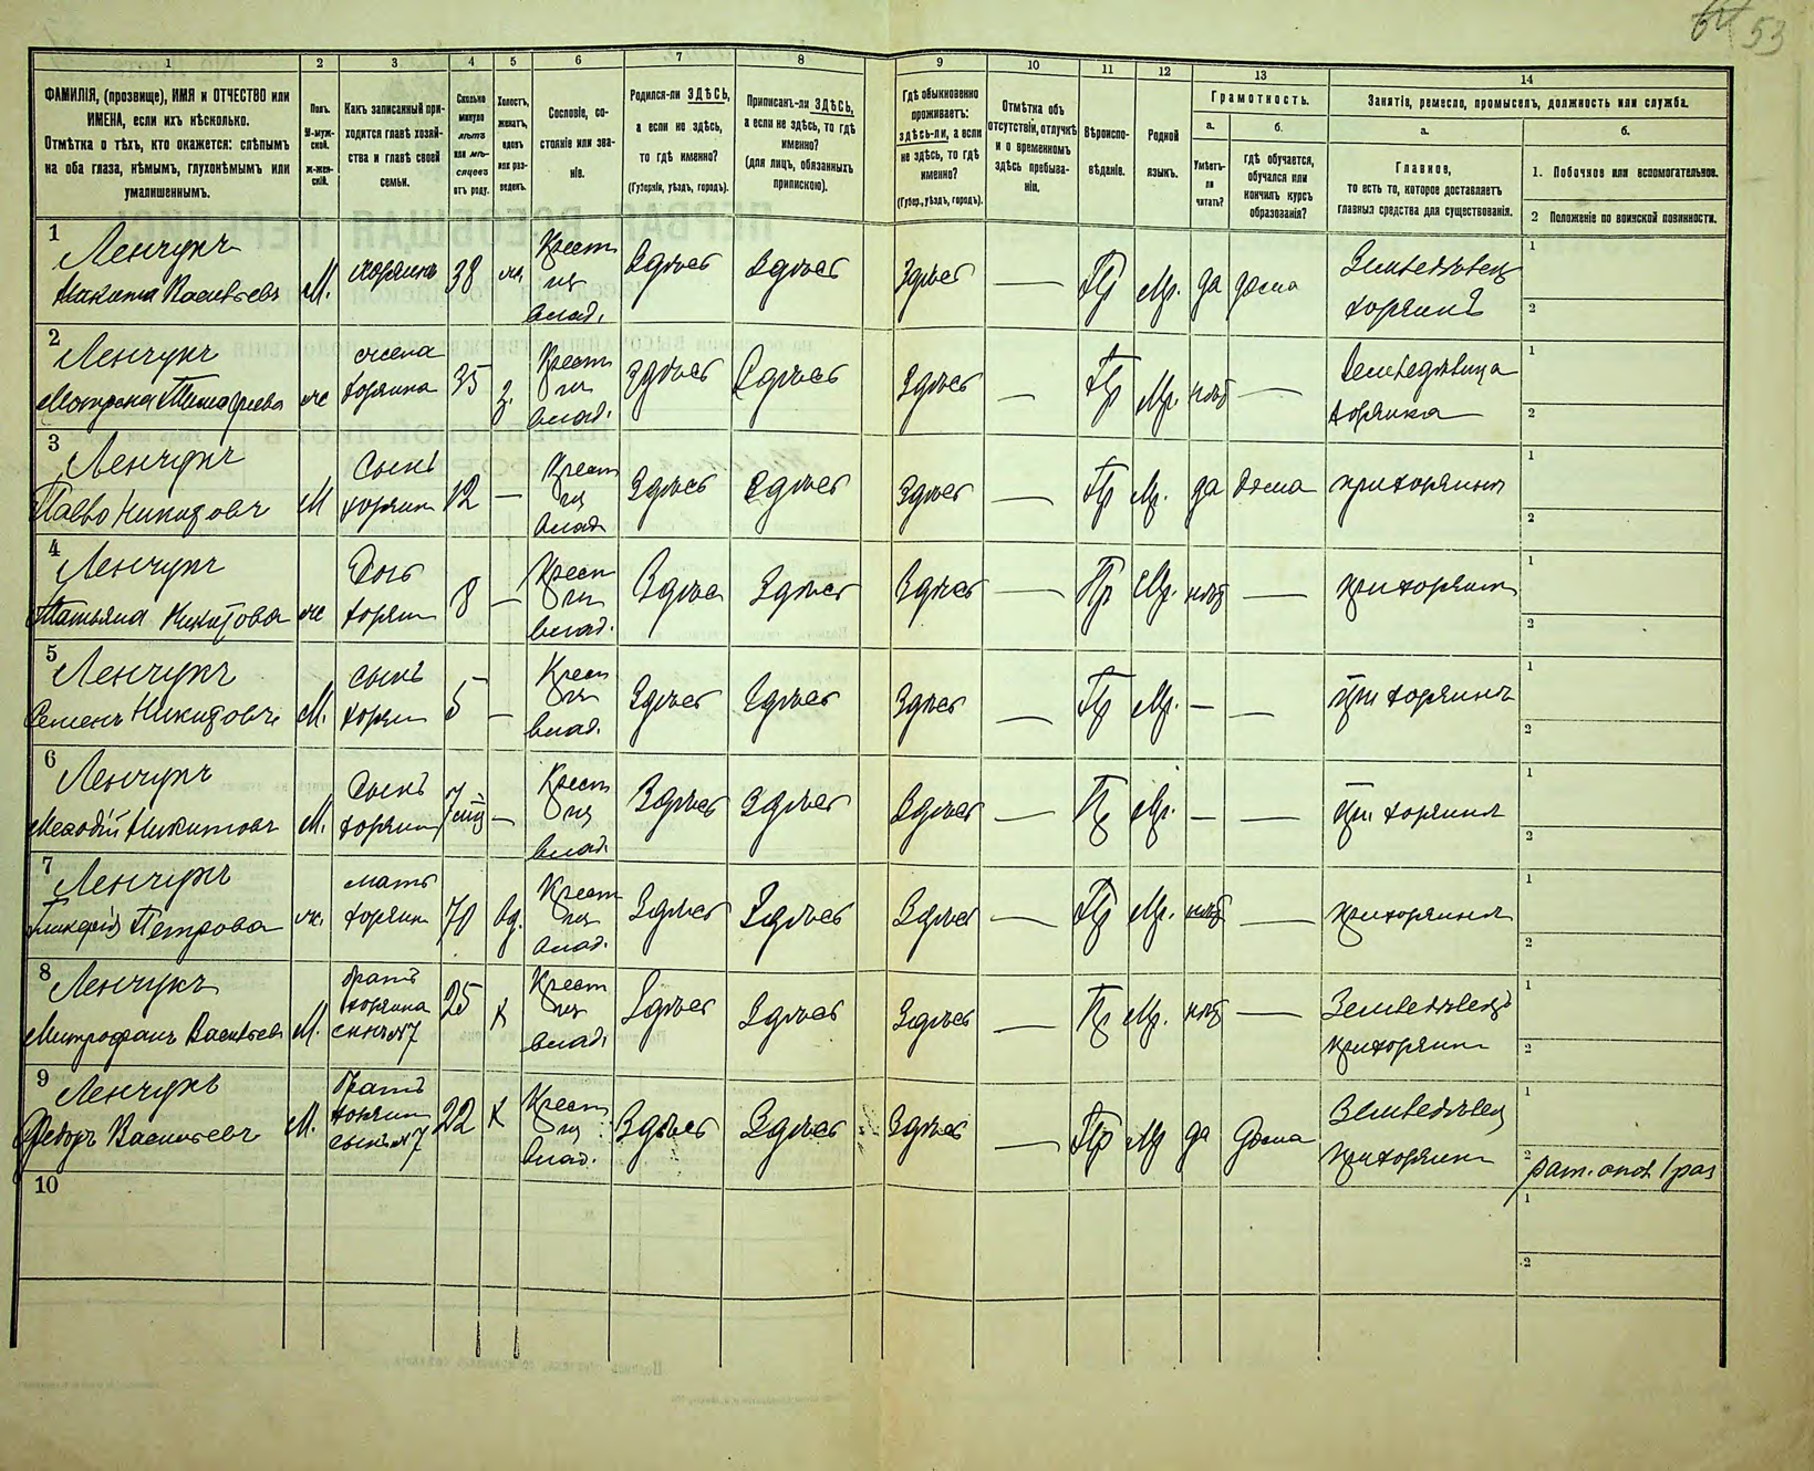 53
1 2 3 4 5 6 7 8 9 10 11 12 13 14
ФАМИЛІЯ, (прозвище), ИМЯ и ОТЧЕСТВО или
ИМЕНА, если ихъ нѣсколько.
Отмѣтка о тѣхъ, кто окажется: слѣпымъ
на оба глаза, нѣмымъ, глухонѣмымъ или
умалишеннымъ.
Полъ.
М-муж-
ской.
Ж-жен-
скій.
Какъ записанный при-
ходится главѣ хозяй-
ства и главѣ своей
семьи.
Сколько
минуло
лѣтъ
или мѣ-
сяцевъ
отъ роду.
Холостъ,
женатъ,
вдовъ
или раз-
веденъ.
Сословіе, со-
стояніе или зва-
ніе.
Родился-ли ЗДѢСЬ,
а если не здѣсь,
то гдѣ именно?
(Губернія, уѣздъ, городъ).
Приписанъ-ли ЗДѢСЬ,
а если не здѣсь, то гдѣ
именно?
(для лицъ, обязанныхъ
припискою).
Гдѣ обыкновенно
проживаетъ:
здѣсь-ли, а если
не здѣсь, то гдѣ
именно?
(Губер., уѣздъ, городъ).
Отмѣтка объ
отсутствіи, отлучкѣ
и о временномъ
здѣсь пребыва-
ніи.
Вѣроиспо-
вѣданіе.
Родной
языкъ.
Грамотность.
а.
Умѣетъ-
ли
читать?
б.
гдѣ обучается,
обучался или
кончилъ курсъ
образованія?
Занятіе, ремесло, промыселъ, должность или служба.
а.
Главное,
то есть то, которое доставляетъ
главныя средства для существованія.
б.
1. Побочное или вспомогательное.
2 Положеніе по воинской повинности.
1
Ленчукъ
Никита Васильевъ
М.
хозяинъ
38
Крест
из
влад.
Здѣсь
Здѣсь
Здѣсь
—
Пр
Мр.
да
дома
Земледѣлец
хозяинъ
1
2
2
Ленчукъ
Мотрона
ж
жена
хозяина
35
З.
Крест
из
влад.
Здѣсь
Здѣсь
Здѣсь
—
Пр
Мр.
нѣт
—
Земледѣлица
хозяика
1
2
3
Ленчукъ
Павло Никитовъ
М
Сынъ
хозяин
12
—
Крест
из
влад
Здѣсь
Здѣсь
Здѣсь
—
Пр
Мр.
да
дома
при хозяинѣ
1
2
4
Ленчукъ
Татьяна Никитова
ж
Дочь
хозяин
8
—
Крест
из
влад.
Здѣсь
Здѣсь
Здѣсь
—
Пр
Мр.
нѣт
—
при хозяин
1
2
5
Ленчукъ
Семенъ Никитовъ
М.
Сынъ
хозяин
5
—
Крест
из
влад.
Здѣсь
Здѣсь
Здѣсь
—
Пр
Мр.
—
—
при хозяинѣ
1
2
6
Ленчукъ
Меѳодій Никитовъ
М.
Сынъ
хозяин
7
—
Крест
из
влад.
Здѣсь
Здѣсь
Здѣсь
—
Пр
Мр.
—
—
при хозяинѣ
1
2
7
Ленчукъ
Гликерія Петрова
ж.
мать
хозяин
70
вд.
Крест
из
влад.
Здѣсь
Здѣсь
Здѣсь
—
Пр
Мр.
нѣт
—
при хозяинѣ
1
2
8
Ленчукъ
Митрофанъ Васильев
М.
братъ
хозяина
сынъ №7
25
К
Крест
из
влад.
Здѣсь
Здѣсь
Здѣсь
—
Пр
Мр.
нѣт
—
Земледѣлецъ
при хозяин
1
2
9
Ленчукъ
Ѳедоръ Васильевъ
М.
братъ
хозяин
сынъ №7
22
К
Крест
из
влад.
Здѣсь
Здѣсь
Здѣсь
—
Пр
Мр
да
дома
Земледѣлец
при хозяин
1
2
рат. опол. 1 раз
10
1
2